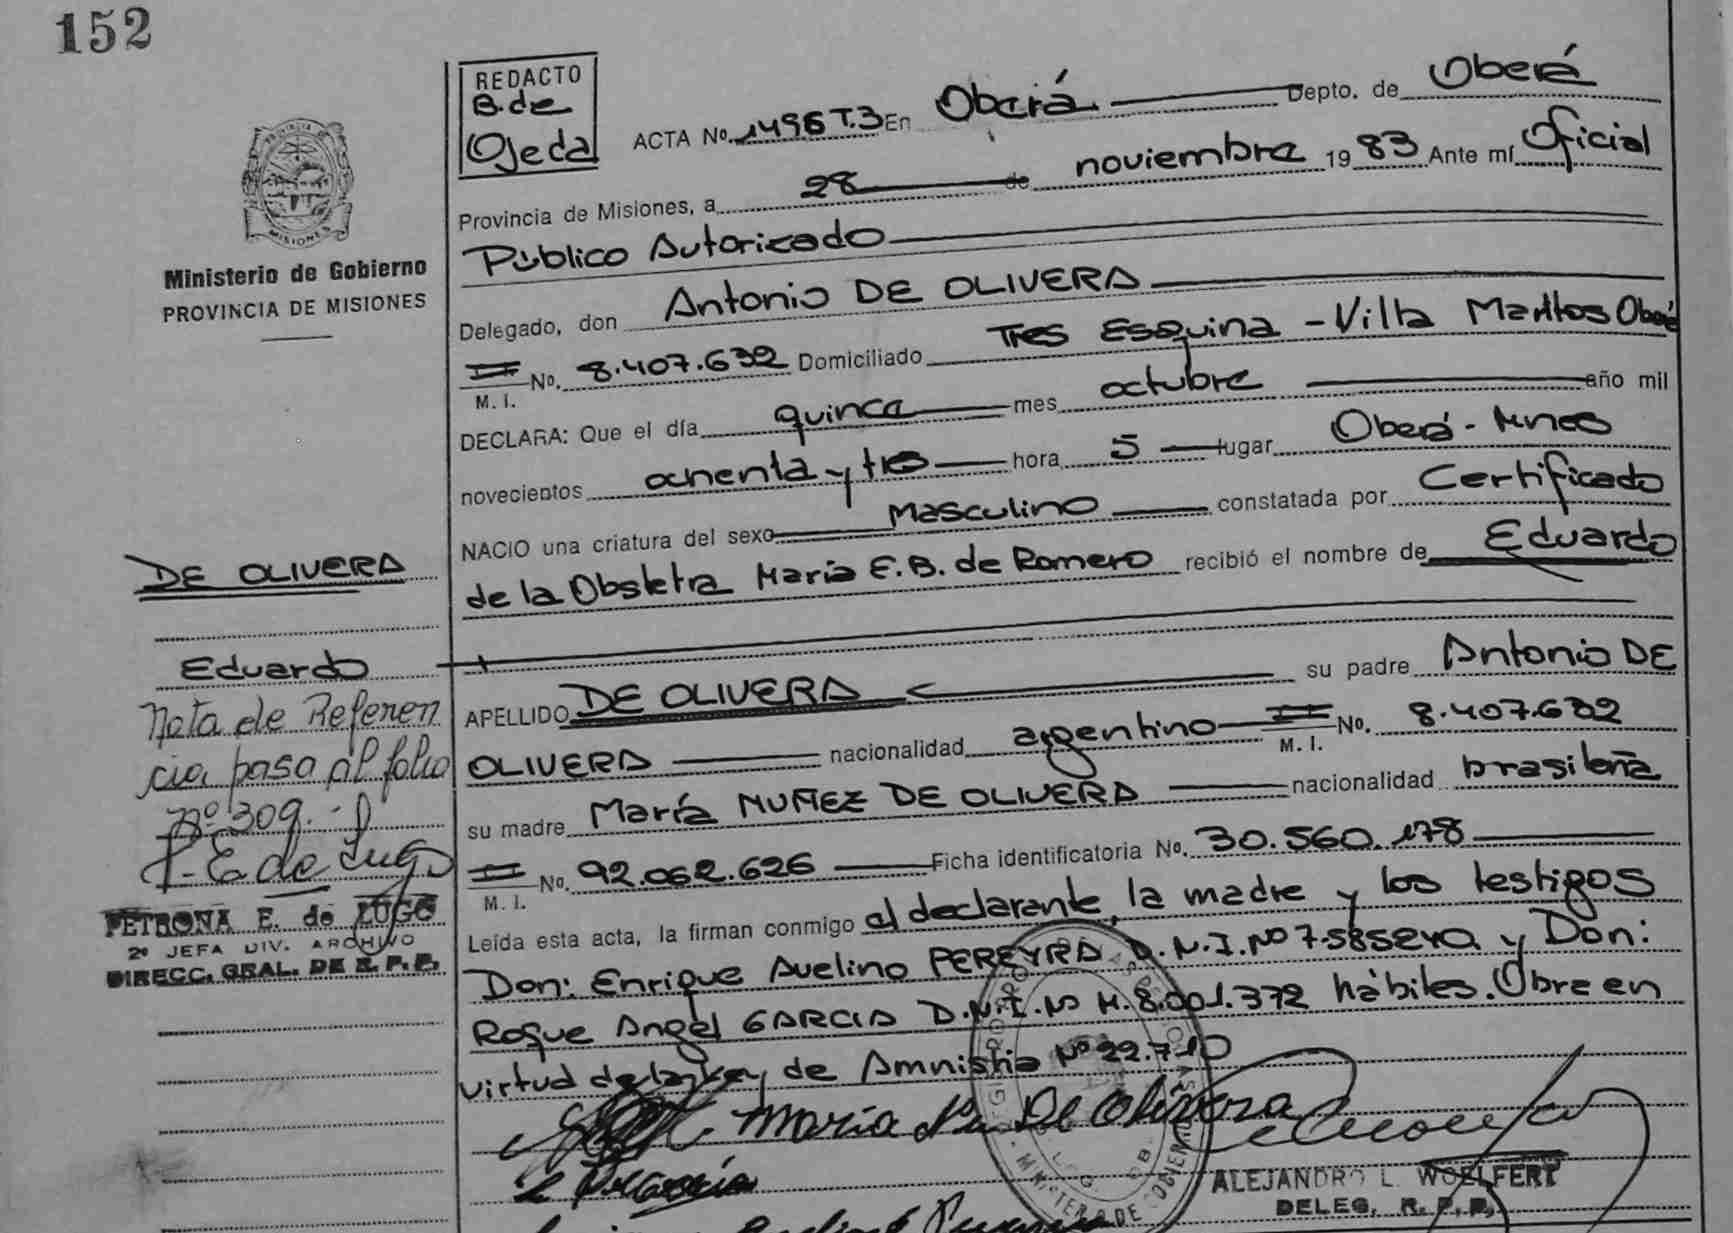 152
REDACTO
B. de
Ojeda
ACTA No. 1496 T.3 En Oberá Depto. de Oberá
Provincia de Misiones, a 28 de noviembre 1983 Ante mí Oficial
Público Autorizado
Delegado, don Antonio DE OLIVERA
M. I. No. 8.407.632 Domiciliado Tres Esquina - Villa Martos Oberá
DECLARA: Que el día quince mes octubre año mil
novecientos ochenta y tres hora 5 lugar Oberá - Mnes
NACIO una criatura del sexo Masculino constatada por Certificado
de la Obstetra María E. B. de Romero recibió el nombre de Eduardo
APELLIDO DE OLIVERA su padre Antonio DE
OLIVERA nacionalidad argentino M. I. No. 8.407.632
su madre María MUÑEZ DE OLIVERA nacionalidad brasileña
M. I. No. 92.062.626 Ficha identificatoria No. 30.560.178
Leída esta acta, la firman conmigo el declarante, la madre y los testigos
Don: Enrique Avelino PEREYRA D.N.I. Nº 7.585.240 y Don:
Roque Angel GARCIA D.N.I. Nº M. 8.001.372 hábiles. Obre en
virtud de la Ley de Amnistia Nº 22.710
Maria De Olivera
ALEJANDRO L. WOELFERT
DELEG. R. P. P.
MISIONES
Ministerio de Gobierno
PROVINCIA DE MISIONES
DE OLIVERA
Eduardo
Nota de Referen
cia pasa al folio
Nº 309.-
P. E. de Lugo
PETRONA E. de LUGO
2º JEFA DIV. ARCHIVO
DIRECC. GRAL. DE R. P. P.